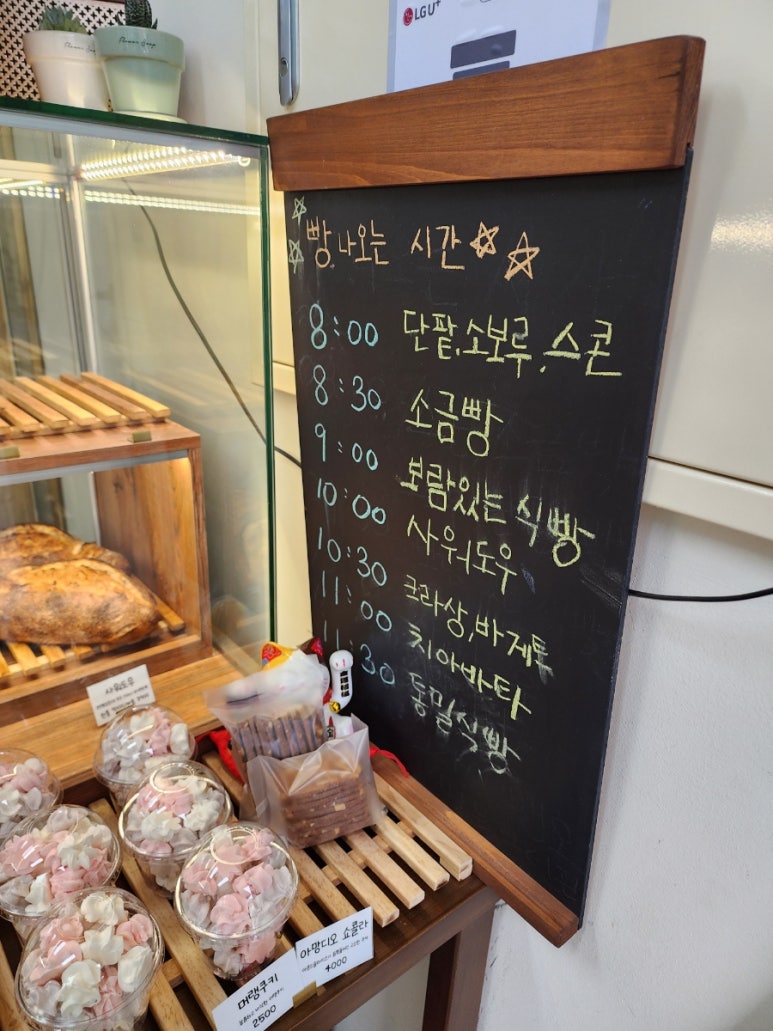 LG U+
빵 나오는 시간
8:00 단팥,소보루,스콘
8:30 소금빵
9:00 보람있는 식빵
10:00 사워도우
10:30 크라상,바게트
11:00 치아바타
11:30 통밀식빵
사워도우
아망디오 쇼콜라
4000
머랭쿠키
2500